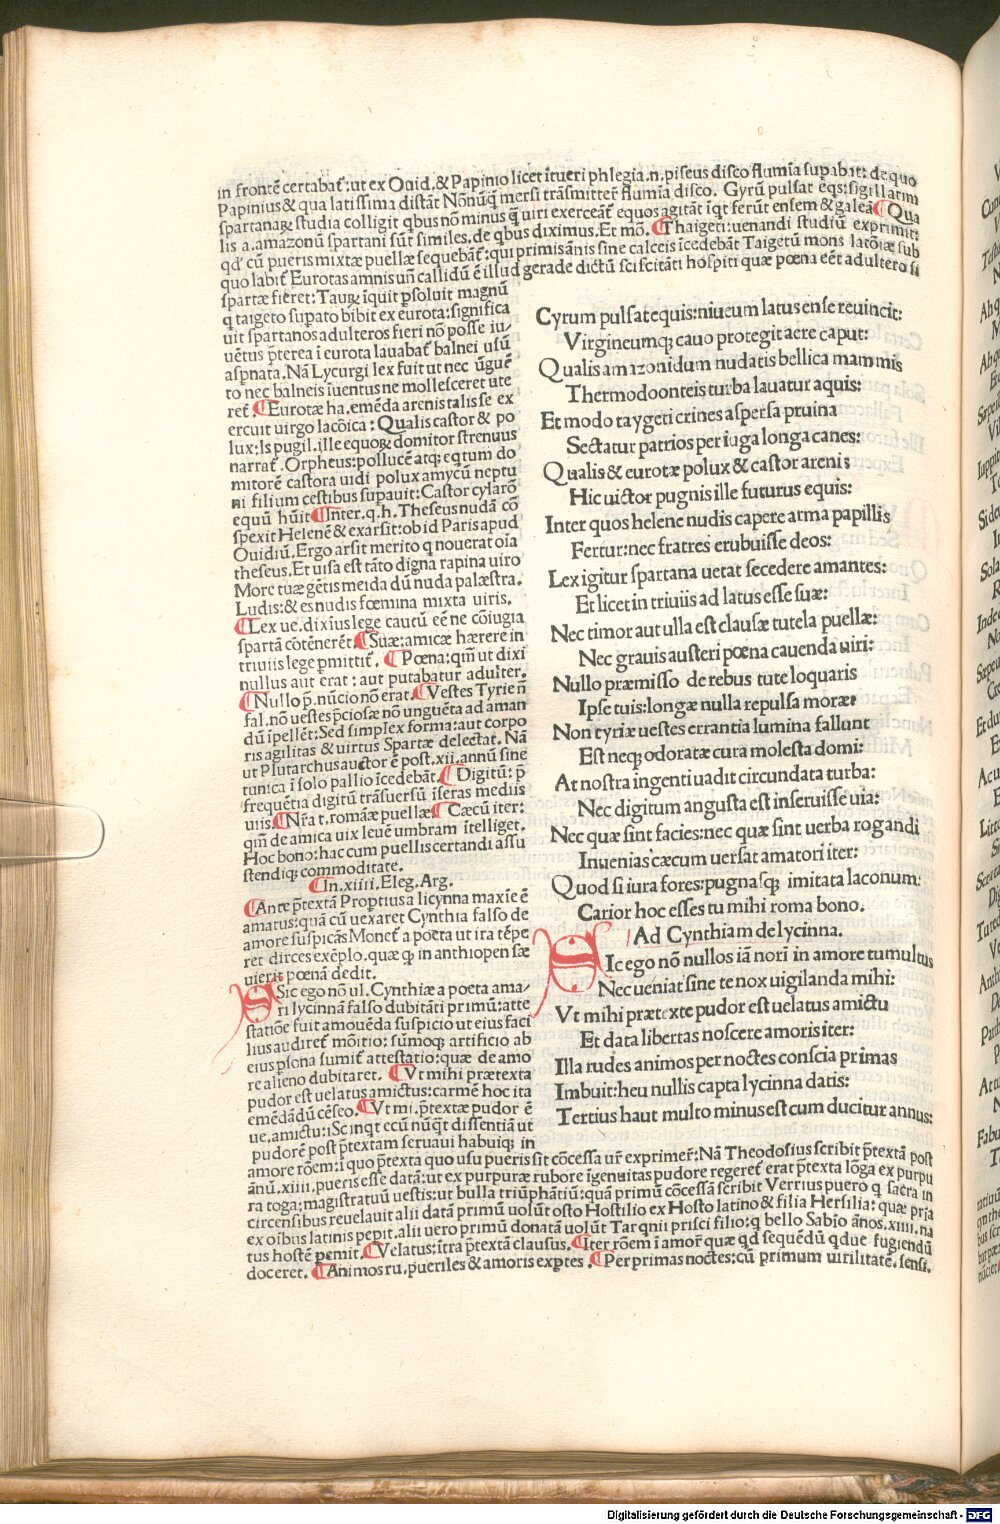 in frontē certabāt: ut ex Ouid. & Papinio licet itueri phlegia.n. piseus disco flumīa supabit: de quo
Papinius & qua latissima distāt Nōnūq̄ mersi trāsmitter flumīa disco. Gyrū pulsat eqs: sigillatim
spartanaꝝ studia colligit qbus nō minus q̄ uiri exerceāt equos agitāt īqt ferūt ensem & galeā ¶ Qua
lis a. amazonū spartani sūt similes. de qbus diximus. Et mō. ¶ Thaigeti: uenandi studiū exprimit
qd' cū pueris mixtæ puellæ sequebāt: qui primis ānis sine calceis īcedebāt Taigetū mons latōiæ sub
quo labit Eurotas amnis un callidū ē illud gerade dictū sciscitāti hospiti quæ pœna eēt adultero si
spartæ fieret: Taurꝰ īquit psoluit magnū
q taigeto supato bibit ex eurota: significa
uit spartanos adulteros fieri nō posse iu/
uētus pterea ī eurota lauabat balnei usū
aspnata. Nā Lycurgi lex fuit ut nec ūguē
to nec balneis iuentus ne mollesceret ute
ret ¶ Eurotæ ha. emēda arenis talis se ex
ercuit uirgo lacōica: Qualis castor & po
lux: Is pugil. ille equoꝝ domitor strenuus
narrat. Orpheus: pollucē atqꝫ eqtum do
mitorē castora uidi polux amycū neptu
ni filium cestibus supauit: Castor cylarō
equū hūit ¶ Inter.q.h. Theseus nudā cō
spexit Helenē & exarsit: ob id Paris apud
Ouidiū. Ergo arsit merito q nouerat oīa
theseus. Et uisa est tāto digna rapina uiro
More tuæ gētis meida dū nuda palæstra.
Ludis: & es nudis fœmina mixta uiris.
¶ Lex ue. dixi us lege cautū eē ne cōiugia
spartā cōtēnerēt. ¶ Suæ: amicæ hærere in
triuiis lege pmittit. ¶ Pœna: qm ut dixi
nullus aut erat: aut putabatur adulter.
¶ Nullo p. nūcio nō erat. ¶ Vestes Tyrie n̄
fal. nō uestes pciosæ nō unguēta ad aman
dū ipellēt: Sed simplex forma: aut corpo
ris agilitas & uirtus Spartæ delectat. Nā
ut Plutarchus auctor ē post.xii. annū sine
tunica ī solo pallio īcedebāt. ¶ Digitū: p
frequētia digitū trāsuersū iseras mediis
uiis. ¶ Nr̄a t. romāæ puellæ ¶ Cæcū iter:
qm̄ de amica uix leuē umbram itelliget.
Hoc bono: hac cum puellis certandi assu
stendiqꝫ commoditate.
¶ In.xiiii. Eleg. Arg.
¶ Ante ptextā Proptius a licynna maxīe ē
amatus: quā cū uexaret Cynthia falso de
amore suspicās Monet a poeta ut ira tēpe
ret dirces exēplo. quæ qꝫ in anthiopen sæ
uierit pœnā dedit.
SSic ego nō ul. Cynthiæ a poeta ama/
ri lycinnā falso dubitāti primū: atte
statiōe fuit amouēda suspicio ut eius faci
lius audiret mōitio: sūmoqꝫ artificio ab
eius psona sumit attestatio: quæ de amo
re alieno dubitaret. ¶ Vt mihi prætexta
pudor est uelatus amictus: carmē hoc ita
emēdādū cēseo. ¶ Vt mi. ptextæ pudor ē
ue. amictu: i Scinqt ecū nūqt dissentiā ut
pudorē post ptextam seruaui habuiqꝫ in
amore rōem: i quo ptexta quo usu pueris sit cōcessa ur̄ exprimet: Nā Theodosius scribit ptextā post
ānū.xiiii. pueris esse datā: ut ex purpuræ rubore īgenuitas pudore regeret erat ptexta lōga ex purpu
ra toga: magistratuū uestis: ut bulla triūphātiū: quā primū cōcessā scribit Verrius puero q sacra in
circensibus reuelauit alii datā primū uolūt osto Hostilio ex Hosto latino & filia Hersilia: quæ pria
ex oībus latinis pepit. alii uero primū donatā uolūt Tarqnii prisci filio: q bello Sabio ānos.xiiii. na
tus hostē pemit. ¶ Velatus: itra ptextā clausus. ¶ Iter rōem ī amor quæ qd sequēdū qdue fugiendū
doceret. ¶ Animos ru. pueriles & amoris exptes. ¶ Per primas noctes: cū primum uirilitatē. sensi.
Cyrum pulsat equis: niueum latus ense reuincit:
Virgineumqꝫ cauo protegit aere caput:
Qualis amazonidum nudatis bellica mammis
Thermodoonteis turba lauatur aquis:
Et modo taygeti crines aspersa pruina
Sectatur patrios per iuga longa canes:
Qualis & eurotæ polux & castor arenis
Hic uictor pugnis ille futurus equis:
Inter quos helene nudis capere arma papillis
Fertur: nec fratres erubuisse deos:
Lex igitur spartana uetat secedere amantes:
Et licet in triuiis ad latus esse suæ:
Nec timor aut ulla est clausæ tutela puellæ:
Nec grauis austeri pœna cauenda uiri:
Nullo præmisso de rebus tute loquaris
Ipse tuis: longæ nulla repulsa moræ:
Non tyriæ uestes errantia lumina fallunt
Est neqꝫ odoratæ cura molesta domi:
At nostra ingenti uadit circundata turba:
Nec digitum angusta est inseruisse uia:
Nec quæ sint facies: nec quæ sint uerba rogandi
Inuenias: cæcum uersat amator iter:
Quod si iura fores: pugnasqꝫ imitata laconum:
Carior hoc esses tu mihi roma bono.
Ad Cynthiam de lycinna.
SIc ego nō nullos iā nori in amore tumultus
Nec ueniat sine te nox uigilanda mihi:
Vt mihi prætexte pudor est uelatus amictu
Et data libertas noscere amoris iter:
Illa rudes animos per noctes conscia primas
Imbuit: heu nullis capta lycinna datis:
Tertius haut multo minus est cum ducitur annus:
Digitalisierung gefördert durch die Deutsche Forschungsgemeinschaft - DFG